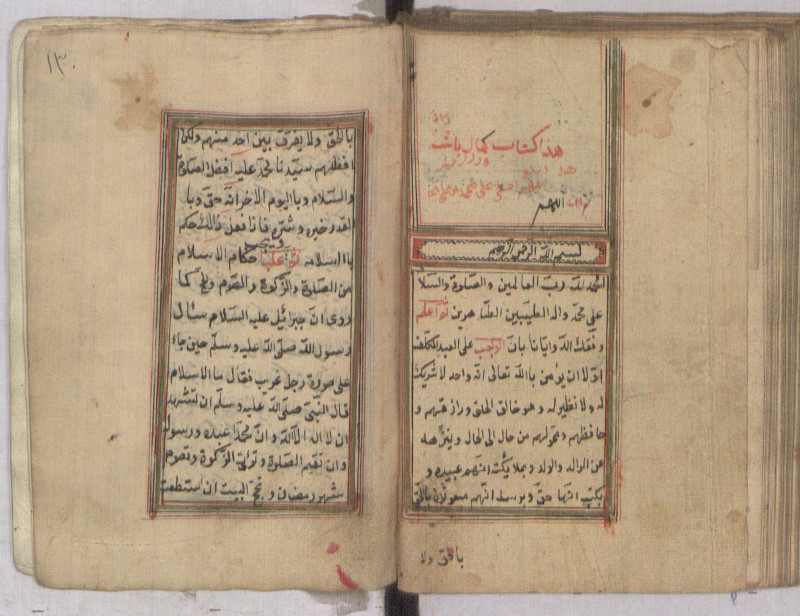 هذا كتاب كمال پاشا
اللهم
بسم الله الرحمن الرحيم
الحمد لله رب العالمين والصلوة والسلا
على محمد واله الطيبين الطاهرين ثم اعلم
وفقك الله وايانا بان الواجب على العبد المكلف
اولا ان يؤمن باالله تعالى انه واحد لا شريك
له ولا نظير له وهو خالق الخلق ورازقهم و
حافظهم ومحولهم من حال الى حال وينزهه
عن الوالد والولد وبملايكته انهم عبيده و
بكتبه انها حق وبرسله انهم مبعوثون بالحق
بالحق ولا
١٣٠
بالحق ولا يفرق بين احد منهم ولكن
افضلهم سيدنا محمد عليه افضل الصلوة
والسلام وباليوم الاخر انه حق وبا
القدر خيره وشره فاذا فعل ذالك حكم
باالسلامه ثم عليه احكام الاسلام
من الصلوة والزكوة والصوم والحج كما
روى ان جبرائيل عليه السلام سئال
رسول الله صلى الله عليه وسلم حين جاء
على صورة رجل غريب فقال ما الاسلام
قال النبى صلى الله عليه وسلم ان تشهد
ان لا اله الا الله وان محمدا عبده ورسوله
وان تقيم الصلوة وتؤتى الزكوة وتصوم
شهر رمضان وتحج البيت ان استطعت